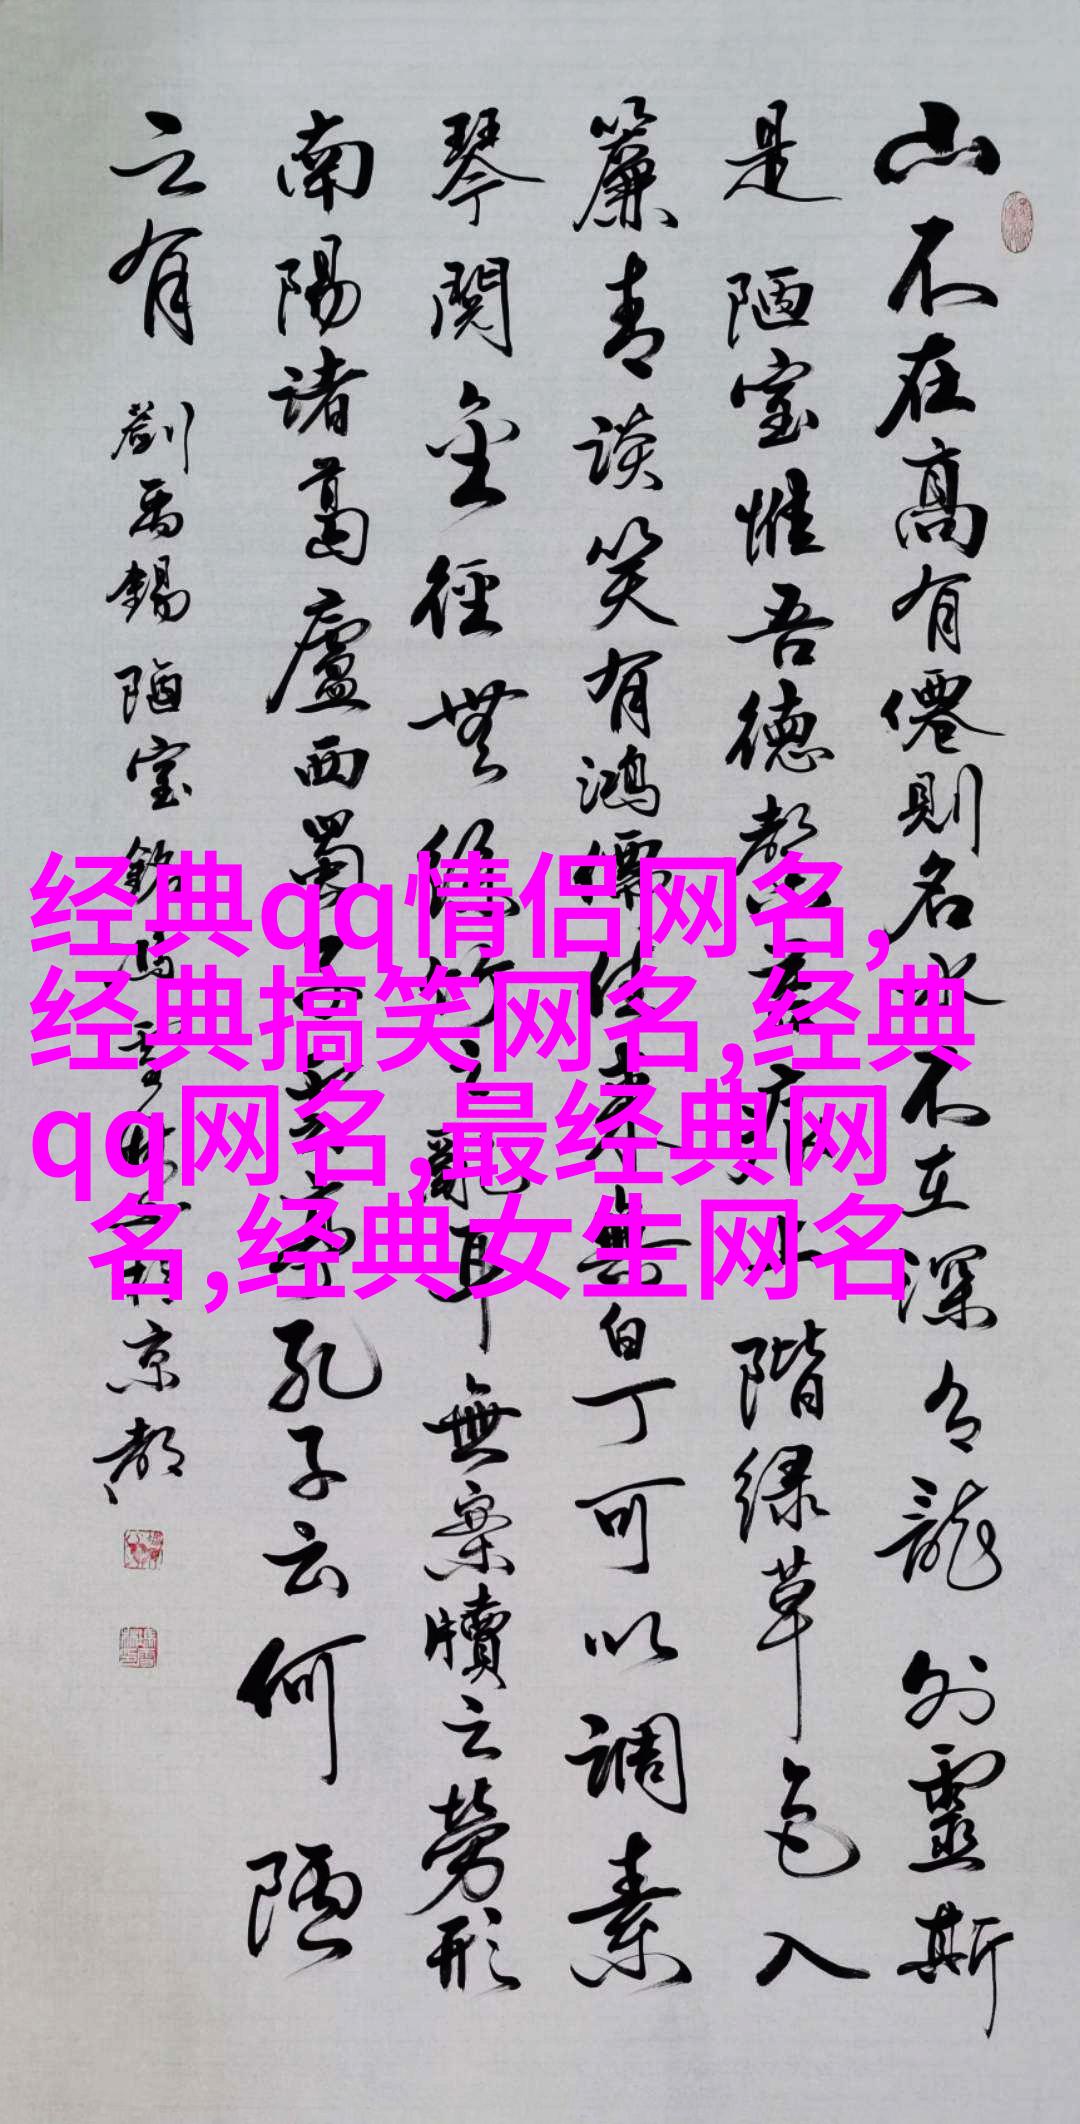 山不在高有僊則名水不在深有龍則靈斯
是陋室惟吾德馨苔痕上階绿草色入
簾青谈笑有鴻儒往来無白丁可以调素
琴閱金徑無絲竹之亂耳無案牘之勞形
南陽诸葛廬西蜀子雲亭孔子云何陋
之有 劉禹錫陋室銘 京都
经典qq情侣网名,
经典搞笑网名,经典
qq网名,最经典网
名,经典女生网名